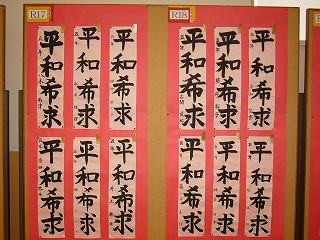 R17
R18
平和希求
平和希求
平和希求
平和希求
平和希求
平和希求
平和希求
平和希求
平和希求
平和希求
平和希求
平和希求